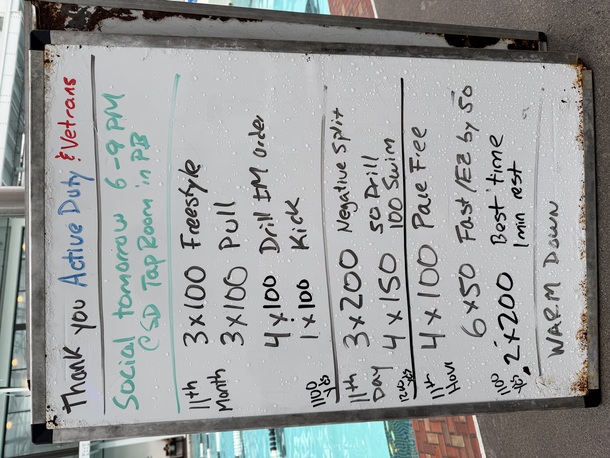 Thank you Active Duty & Vetrans
Social tomorrow 6-9 PM
CSD Tap Room in PB
11th Month
3x100 Freestyle
3x100 Pull
4x100 Drill IM order
1x100 Kick
1100 yds
11th Day
3x200 Negative Split
4x150 50 Drill 100 Swim
1200 yds
11th Hour
4x100 Pace Free
6x50 Fast/EZ by 50
2x200 Best time 1 min rest
1100 yds
WARM DOWN